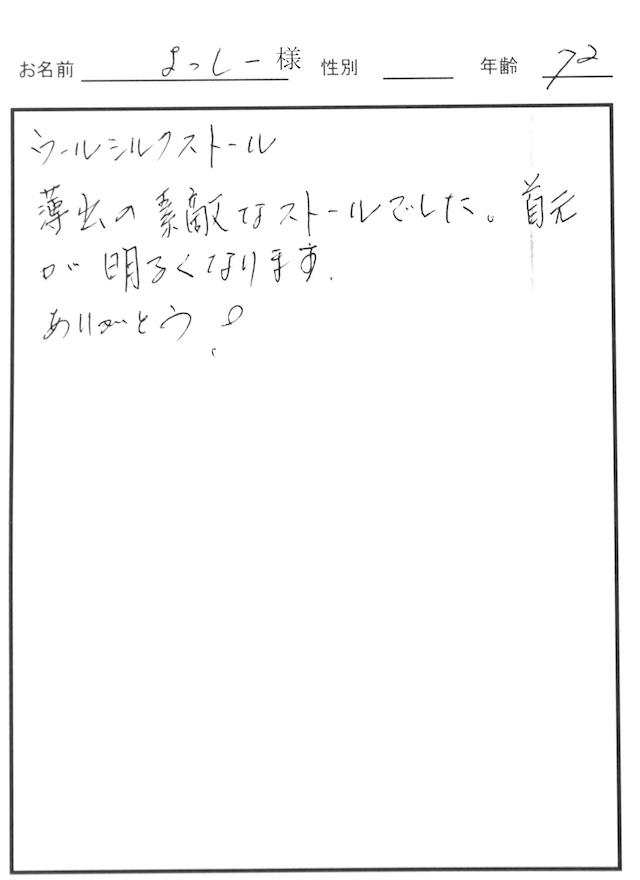 お名前 よっしー様 性別 年齢 72
ウールシルクストール
薄出の素敵なストールでした。首元
が明るくなります.
ありがとう!